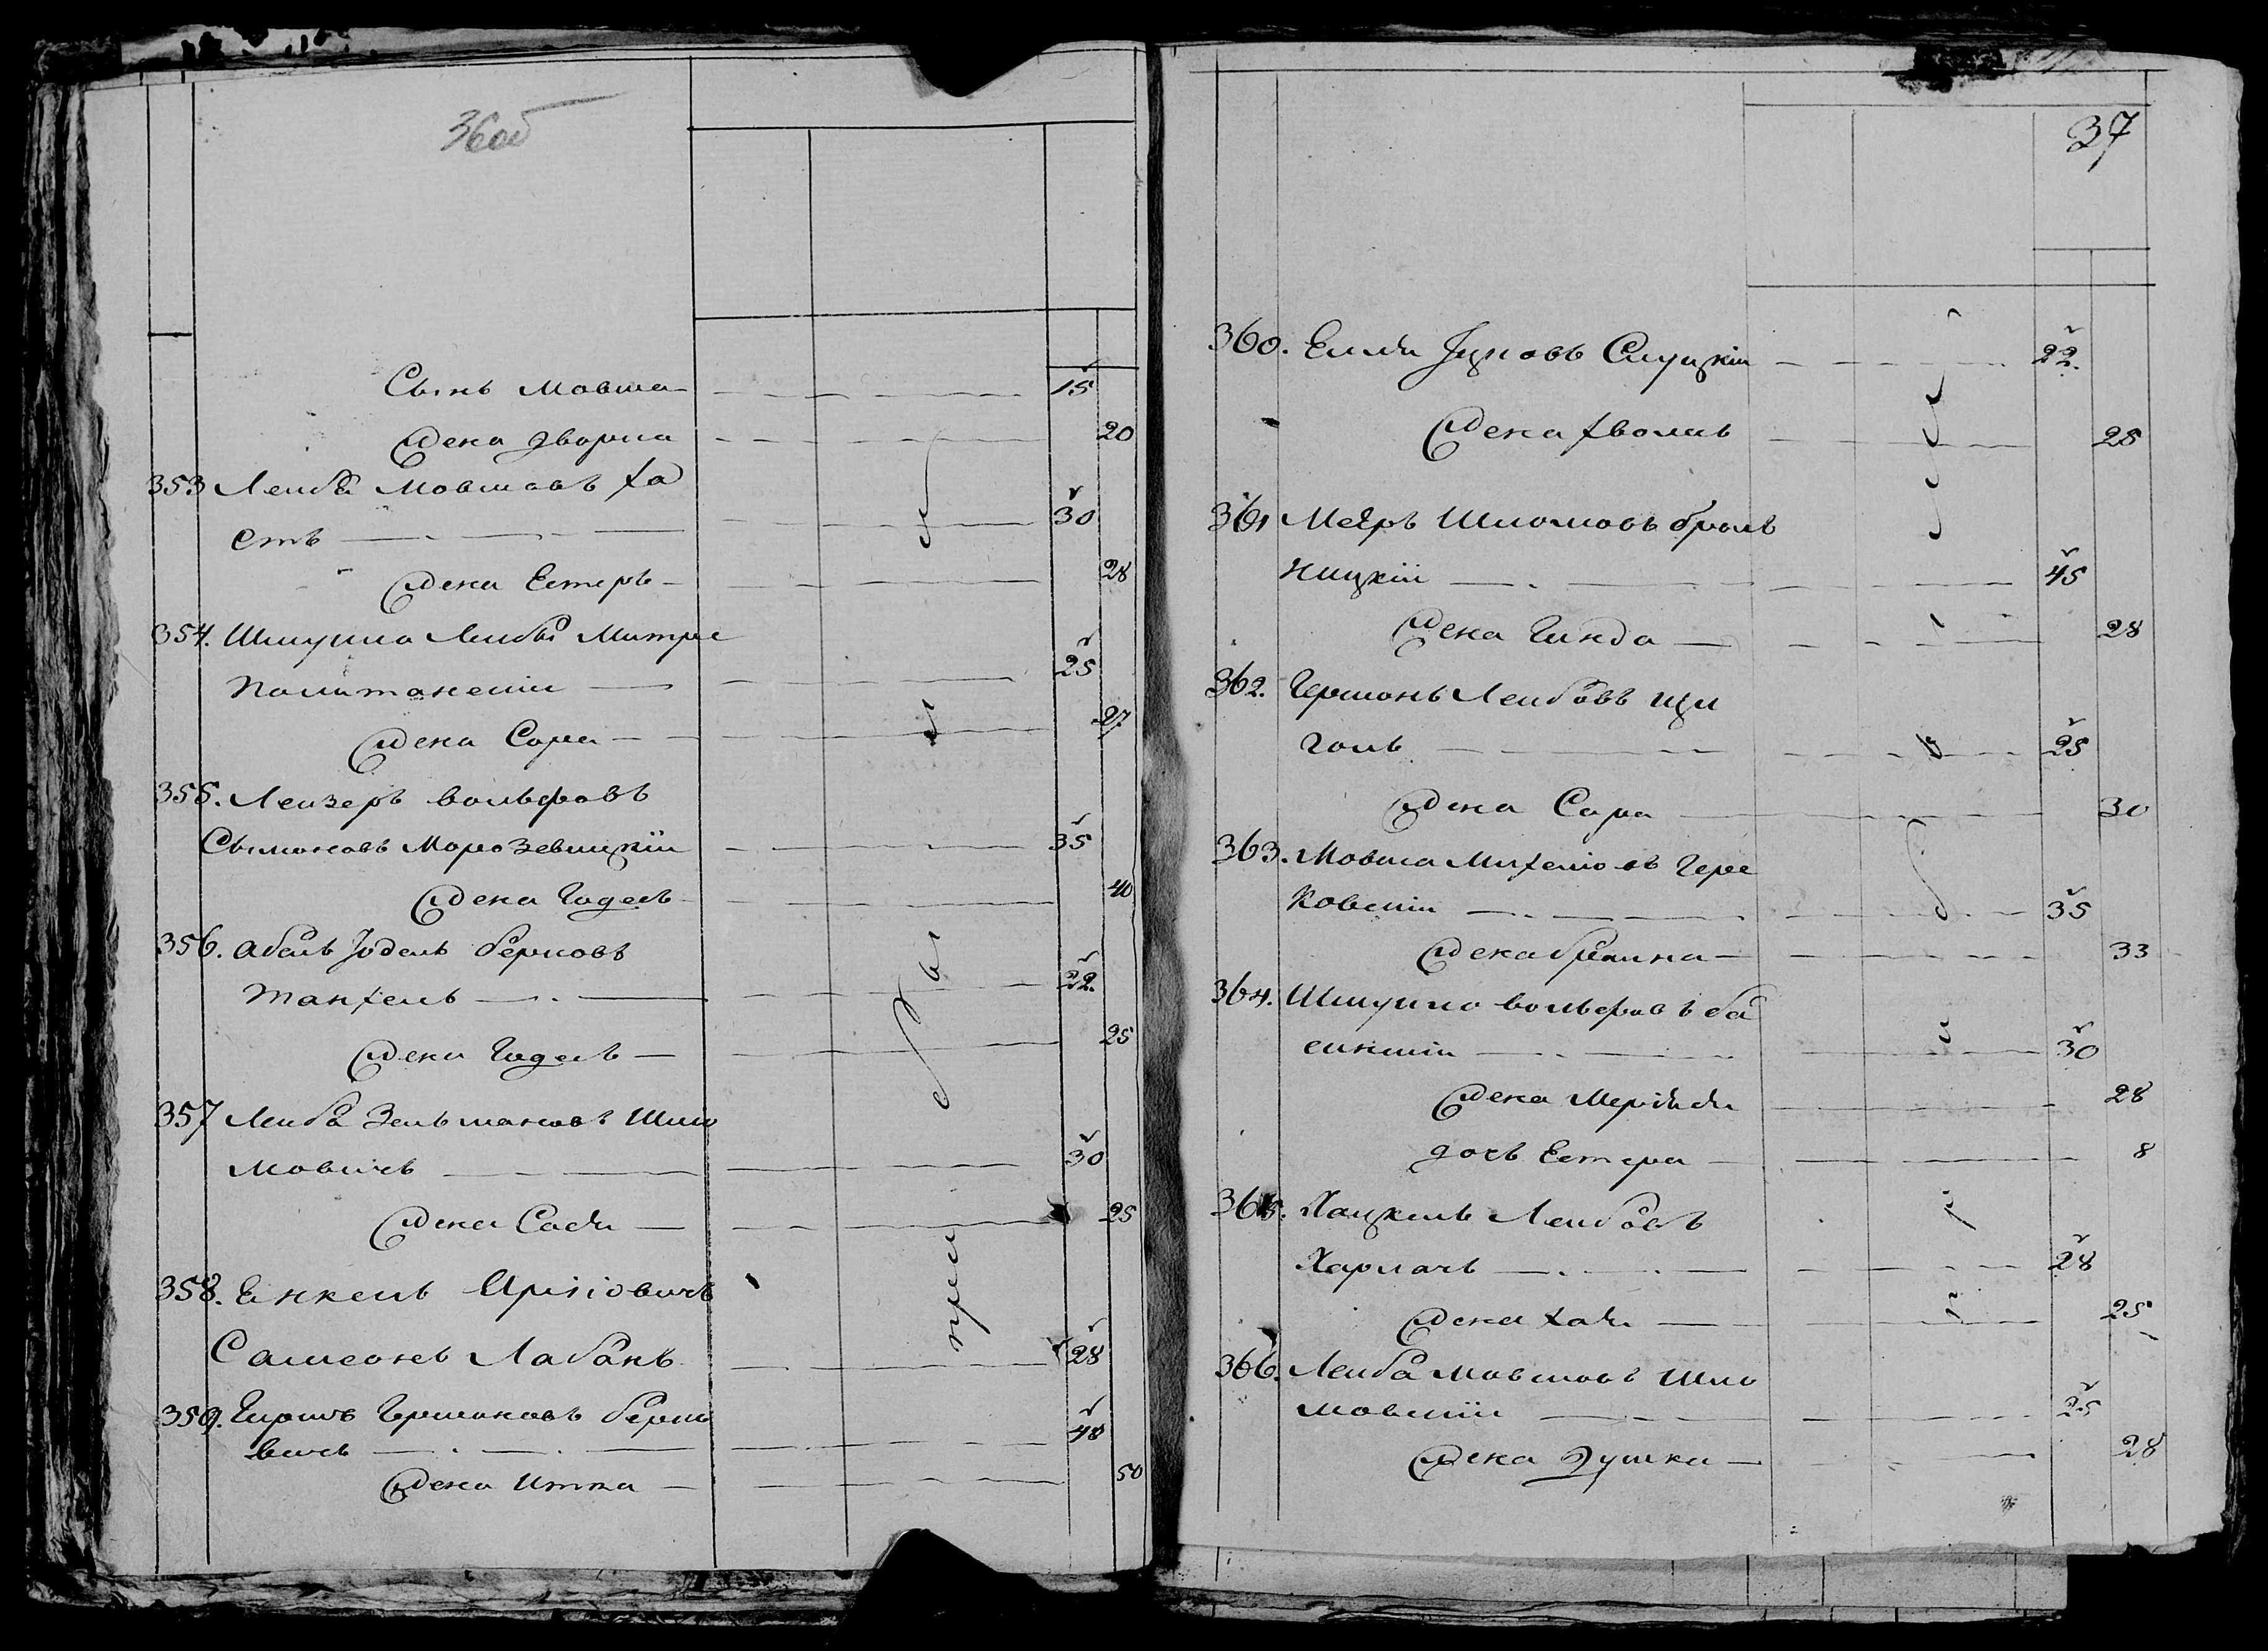 36об
Сынъ Мовша 15
Жена Двориа 20
353 Лейба Мовшовъ Ха
етъ 30
Жена Естеръ 28
354. Шмуила Лейбы Митре
политанскiи 25
Жена Сора 27
355. Лейзеръ Вольфовъ
Сымоновъ Морозевицкiи 35
Жена Годесъ 40
356. Абель Юдель Берковъ
Танхель 22.
Жена Годесъ 25
357 Лейба Зельмановъ Шмо
мовичъ 30
Жена Сося 25
358. Енкель Арiовичъ
Самсонъ Лабанъ 28
359. Гиршъ Гершоновъ Берко
вичъ 48
Жена Итка 50
37
360. Елья Ицковъ Слуцкiи 22.
Жена Хволсъ 25
361 Мееръ ШломовъБроль
ницкiи 45
Жена Гинда 28
362. Гершонъ Лейбовъ Щи
голь 25
Жена Сора 30
363. Мовша Михелiовъ Гере
ковскiи 35
Жена Брайна 33
364. Шмуило Вольфовъ Ба
синскiи 30
Жена 28
дочь Естера 8
365. Хацкель Лейбовъ
Харлачъ 28
Жена Хая 25
366. Лейба Мовшовъ Шло
мовскiи 25
Жена Душка 28